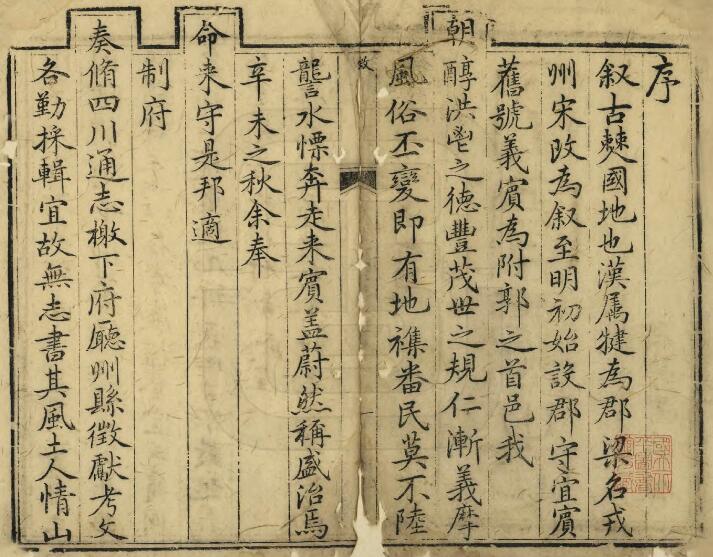 序
叙古僰國地也漢屬犍為郡梁名戎
州宋改為叙至明初始設郡守宜賓
舊號義賓為附郭之首邑我
朝醇洪鬯之德豐茂世之規仁漸義摩
風俗丕變即有地襍番民莫不陸
讋水慄奔走来賓盖蔚然稱盛治焉
辛未之秋余奉
命来守是邦適
制府
奏脩四川通志檄下府廳州縣徵獻考文
各勤採輯宜故無志書其風土人情山